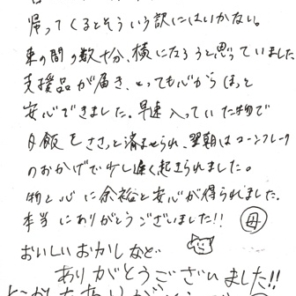 帰ってくるとそういう訳にはいかない。
束の間の数十分、横になろうと思っていました
支援品が届き、とっても心からほっと
安心できました。早速入っていた物で
夕飯をささっと済ませられ、翌朝はコーンフレーク
のおかげで少し遅く起きられました。
物と心に余裕と安心が得られました。
本当にありがとうございました!! 母
おいしいおかしなど
ありがとうございました!!